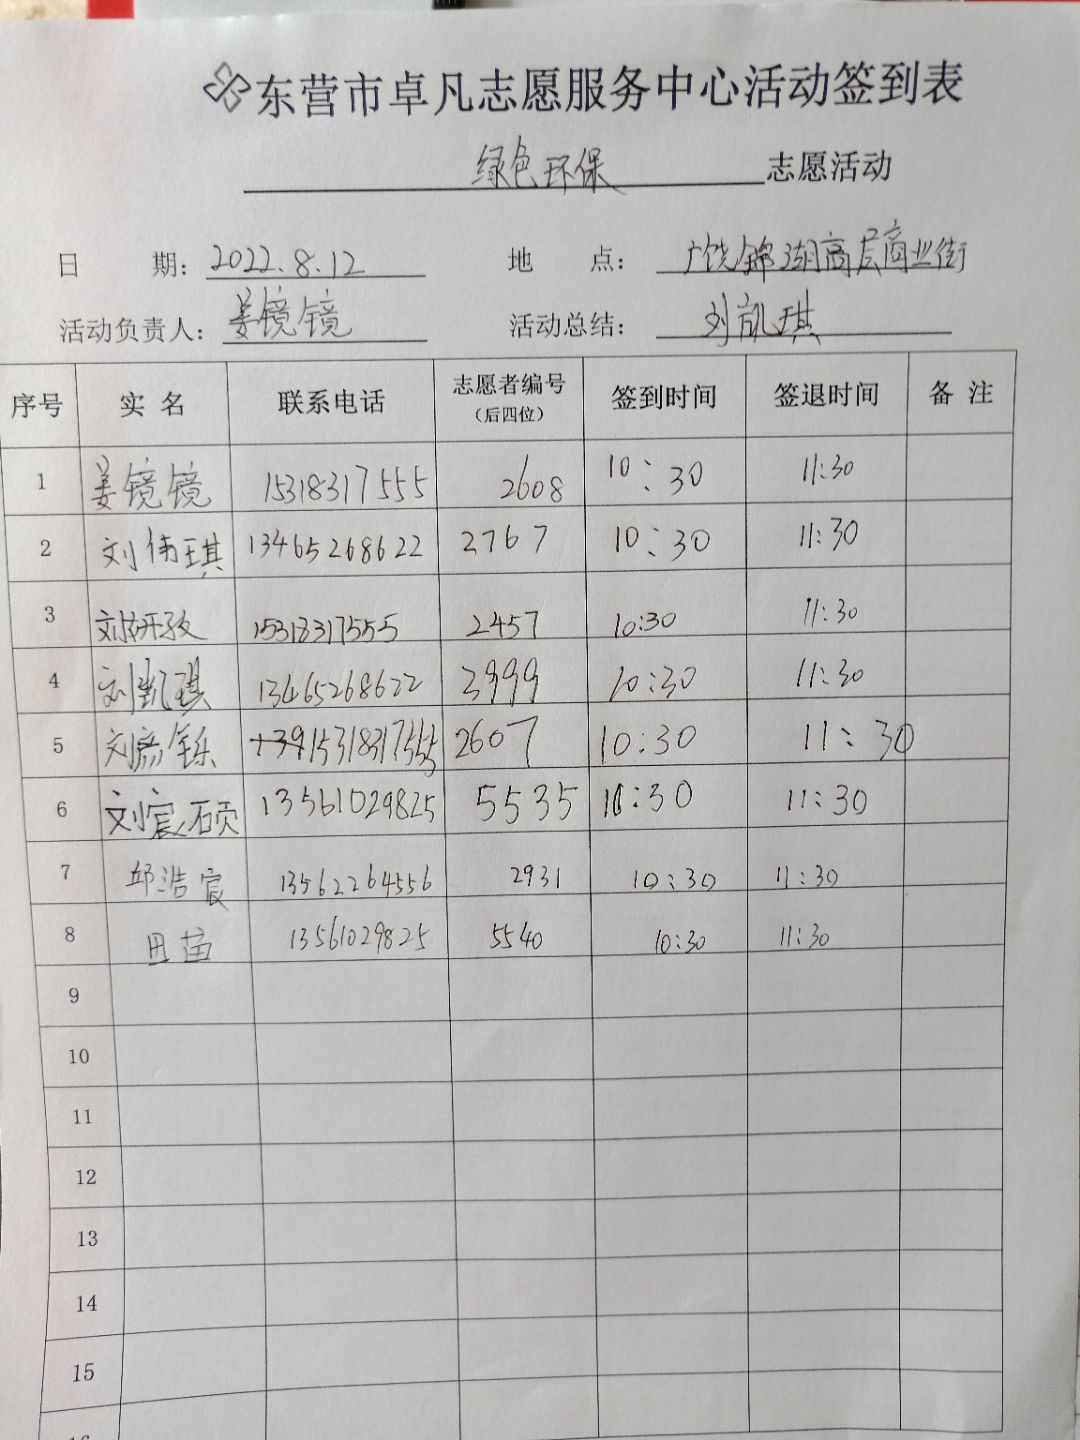 东营市卓凡志愿服务中心活动签到表
绿色环保 志愿活动
日 期: 2022.8.12 地 点: 广饶锦湖高层商业街
活动负责人: 姜镜镜 活动总结: 刘凯琪
序号 实名 联系电话 志愿者编号(后四位) 签到时间 签退时间 备注
1 姜镜镜 15318317555 2608 10:30 11:30
2 刘伟琪 13465268622 2767 10:30 11:30
3 刘妍孜 15318317555 2457 10:30 11:30
4 刘凯琪 13465268622 2999 10:30 11:30
5 刘 15318317555 2607 10:30 11:30
6 刘宸硕 13561029825 5535 10:30 11:30
7 邱浩宸 13562264556 2931 10:30 11:30
8 田苗 13561029825 5540 10:30 11:30
9
10
11
12
13
14
15